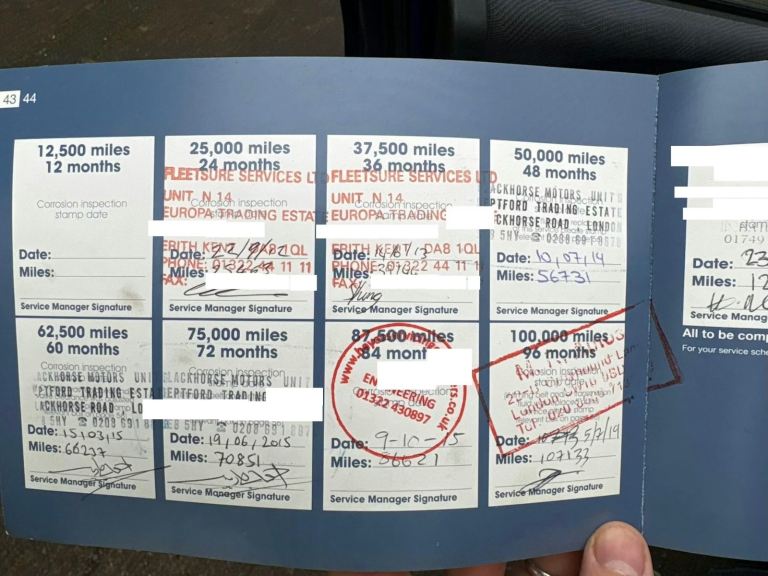 43 44
12,500 miles
12 months
Corrosion inspection
stamp date
Date:
Miles:
Service Manager Signature
25,000 miles
24 months
FLEETSURE SERVICES LTD
UNIT. N 14
Corrosion inspection
EUROPA TRADING ESTATE
ERITH KENT DA8 1QL
Date: 22/9/12
PHONE: 01322 44 11 11
Miles:
FAX:
Service Manager Signature
37,500 miles
36 months
FLEETSURE SERVICES LTD
UNIT. N 14
Corrosion inspection
EUROPA TRADING
ERITH KENT DA8 1QL
Date: 14/8/13
PHONE: 01322 44 11 11
Miles:
FAX:
Service Manager Signature
50,000 miles
48 months
ACKHORSE MOTORS UNIT
PTFORD TRADING ESTATE
ACKHORSE ROAD LONDON
8 5HY ☎ 0208 691
Date: 10,07,14
Miles: 56731
Service Manager Signature
01749
Date: 23
Miles: 12
Service Manag
All to be comp
For your service sche
62,500 miles
60 months
ACKHORSE MOTORS UNI
PTFORD TRADING ESTA
LACKHORSE ROAD LO
☎ 0208 691
Date: 15,03,15
Miles: 66237
Service Manager Signature
75,000 miles
72 months
LACKHORSE MOTORS UNIT
EPTFORD TRADING
Date: 19,06,2015
Miles: 70851
Service Manager Signature
87,500 miles
84 mont
ENGINEERING
01322 430897
Date: 9-10-15
Miles: 86621
Service Manager Signature
100,000 miles
96 months
London
Date: 5/7/19
Miles: 107133
Service Manager Signature